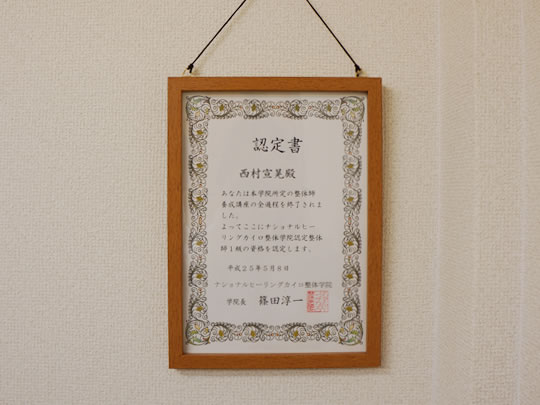 認定書
西村宣晃殿
あなたは本学院所定の整体師
養成講座の全過程を終了されま
した。
よってここにナショナルヒー
リングカイロ整体学院認定整体
師1級の資格を認定します。
平成25年5月8日
ナショナルヒーリングカイロ整体学院
学院長 篠田淳一